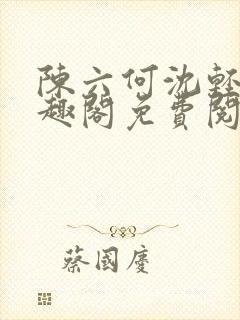 陳六何沈輕
趣閣免費閱
蔡國慶